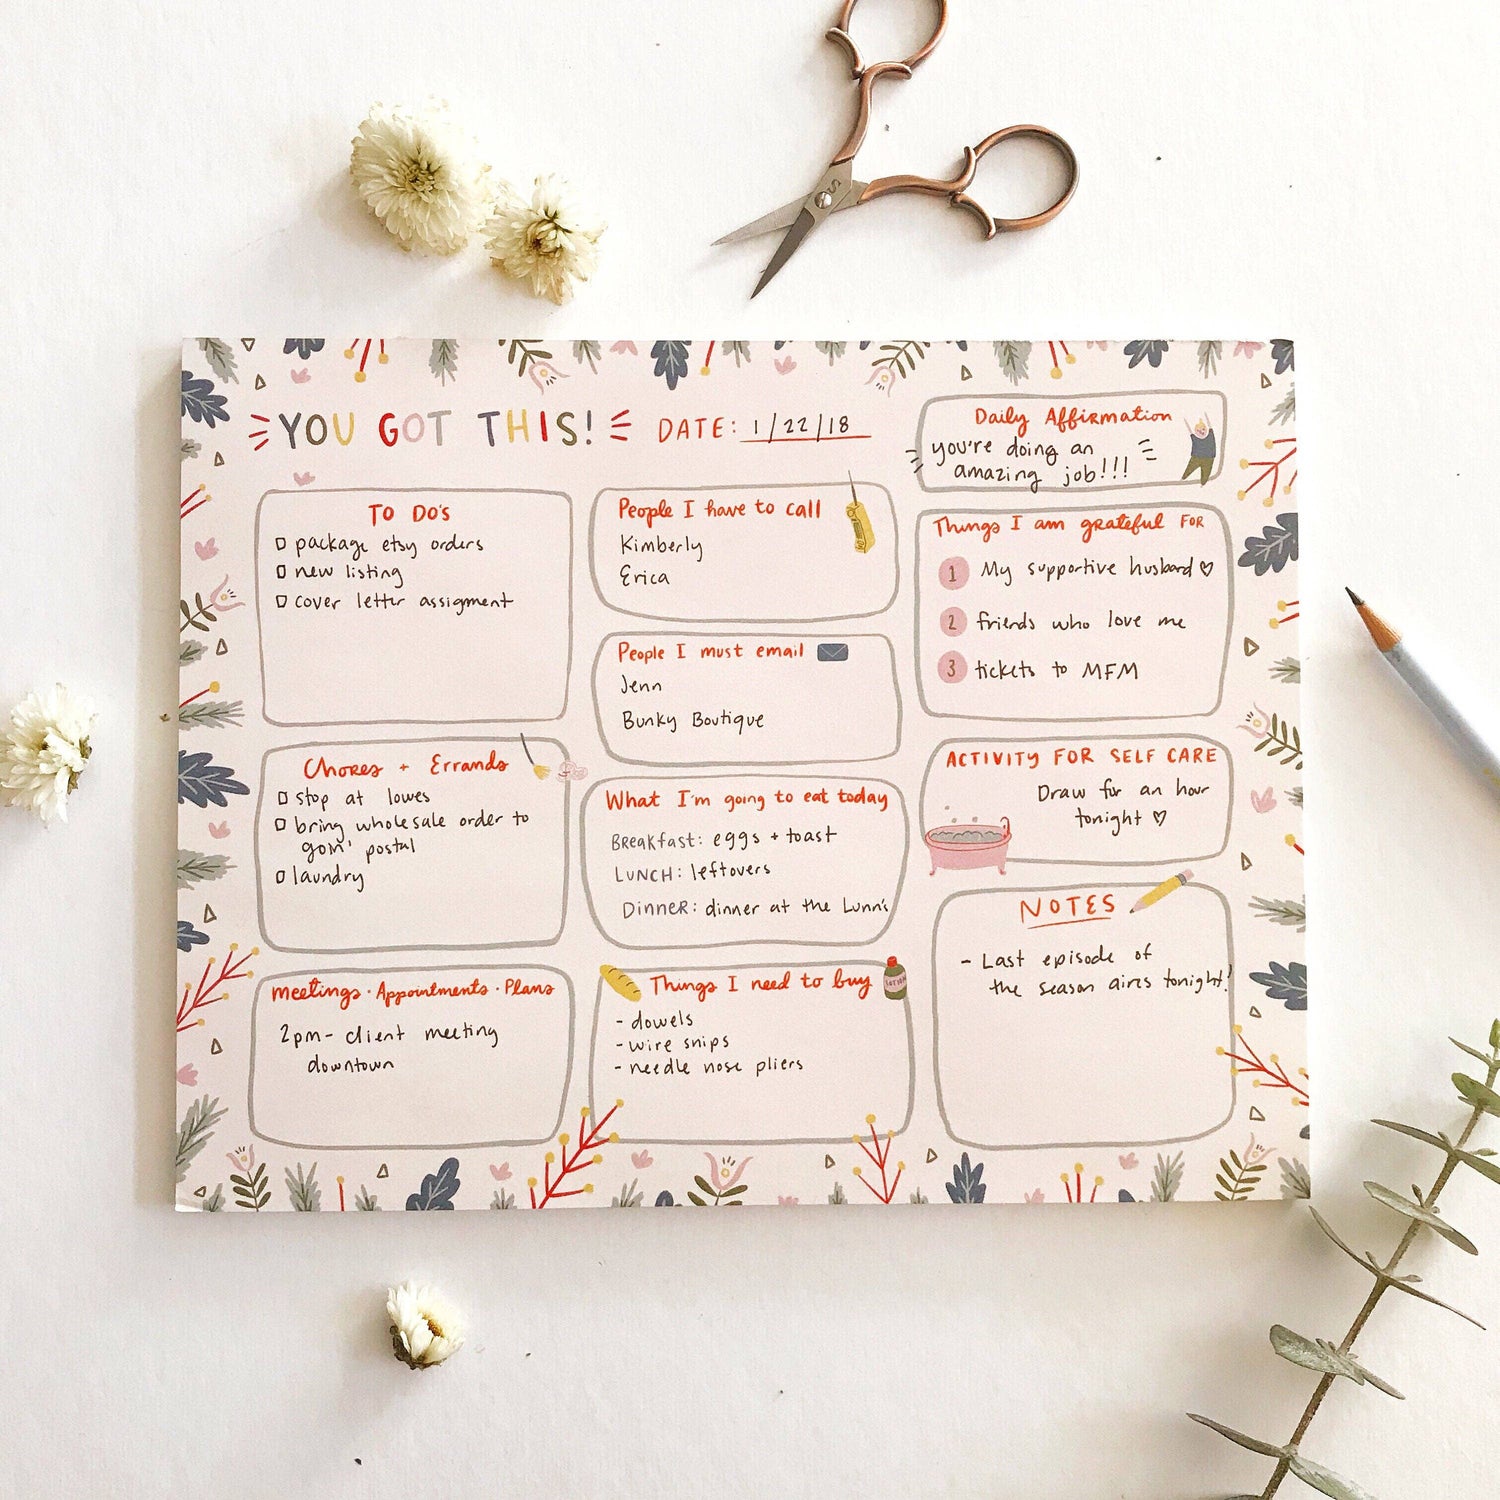 YOU GOT THIS!
DATE: 1/22/18
Daily Affirmation
you're doing an
amazing job!!!
TO DO'S
package etsy orders
new listing
cover letter assigment
Chores + Errands
stop at lowes
bring wholesale order to
goin' postal
laundry
Meetings · Appointments · Plans
2pm - client meeting
downtown
People I have to call
Kimberly
Erica
People I must email
Jenn
Bunky Boutique
What I'm going to eat today
Breakfast: eggs + toast
LUNCH: leftovers
Dinner: dinner at the Lunn's
Things I need to buy
LOTION
- dowels
- wire snips
- needle nose pliers
Things I am grateful FOR
1 My supportive husband ♡
2 friends who love me
3 tickets to MFM
ACTIVITY FOR SELF CARE
Draw for an hour
tonight ♡
NOTES
- Last episode of
the season aires tonight!